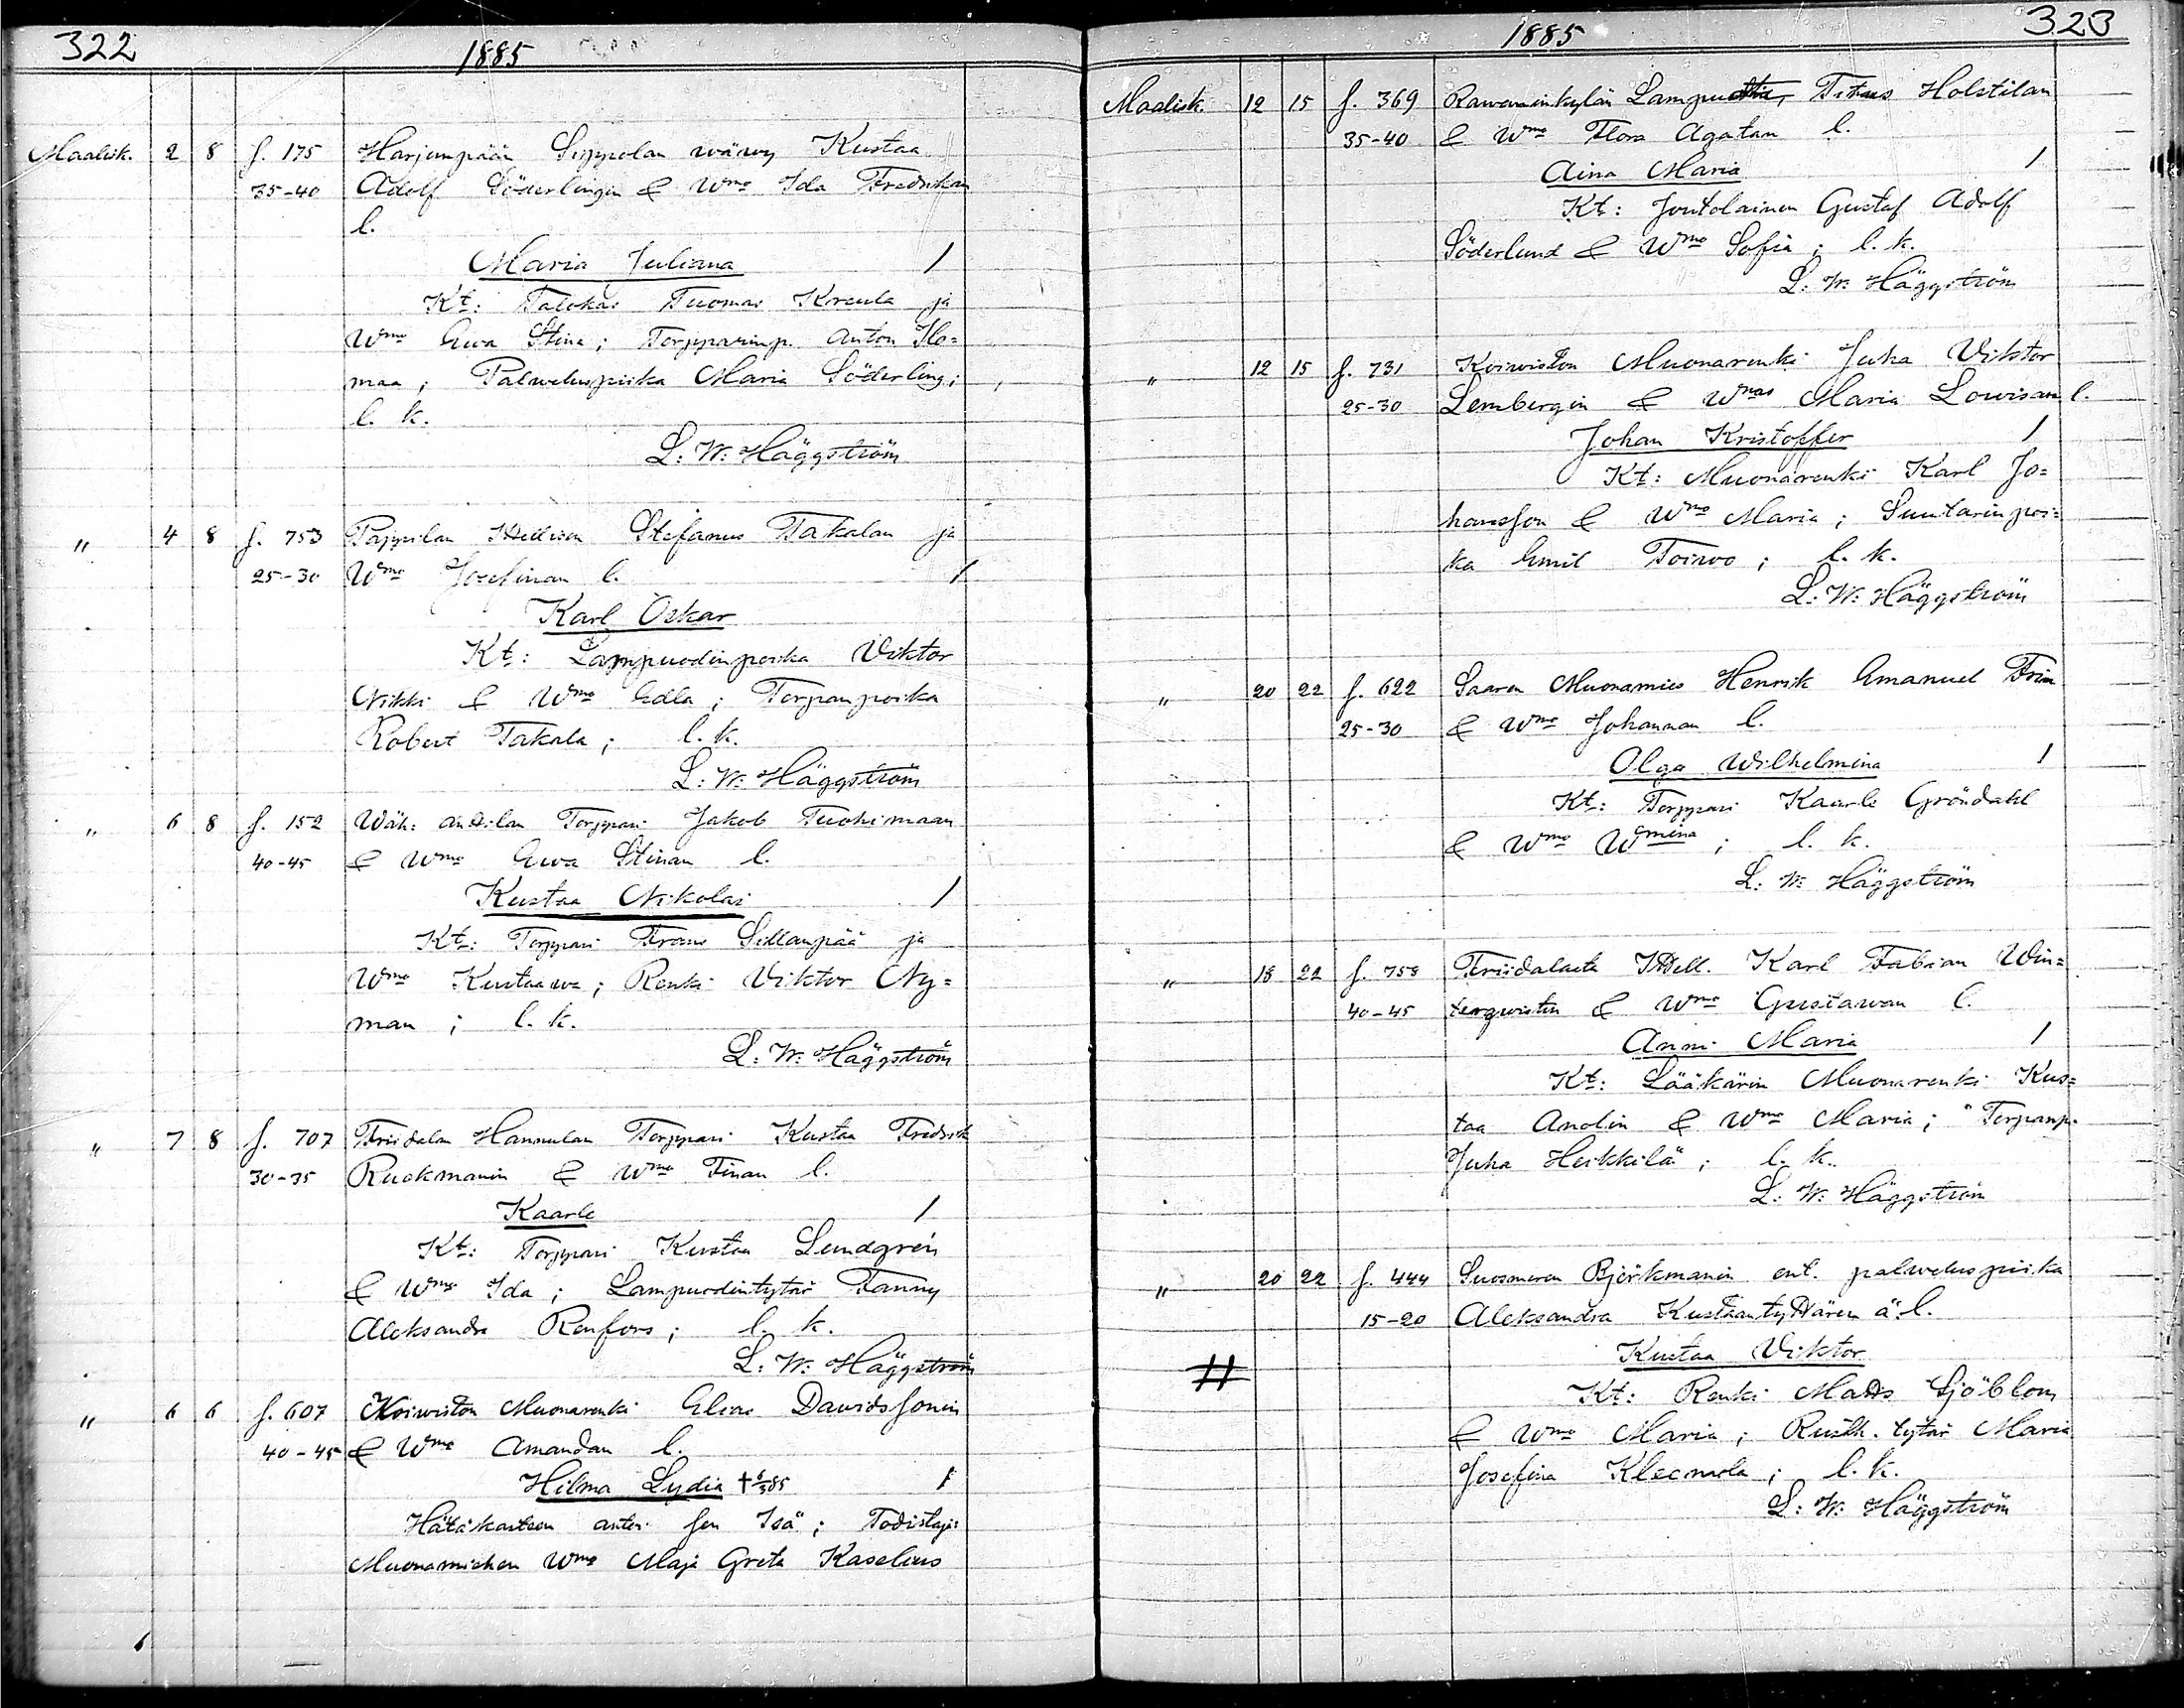 322
1885
Maalisk. 2 8 f. 175 Harjunpään Seppolan wäwy Kustaa
35-40 Adolf Söderlingin & Wmo Ida Fredrikan
l.
Maria Juliana /
Kt: Talokas Tuomas Kreula ja
Wmo Ewa Stina; Torpparinp. Anton Ilo=
maa; Palweluspiika Maria Söderling;
l. k.
L. W. Häggström
" 4 8 f. 753 Pappilan Itellisen Stefanus Takalan ja
25-30 Wmo Josefinan l. /
Karl Oskar
Kt: Lampuodinpoika Viktor
Nikki & Wmo Edla; Torpanpoika
Robert Takala; l. k.
L. W. Häggström
" 6 8 f. 152 Wäh: Anttilan Torppari Jakob Tuohimaan
40-45 & Wmo Ewa Stinan l.
Kustaa Nikolai /
Kt: Torppari Frans Sillanpää ja
Wmo Kustaawa; Renki Viktor Ny=
man; l. k.
L. W. Häggström
" 7 8 f. 707 Friidalan Hannulan Torppari Kustaa Fredrik
30-35 Ruokmanin & Wmo Finan l.
Kaarle /
Kt: Torppari Kustaa Lundgrén
& Wmo Ida; Lampuodintytär Fanny
Aleksandra Renfors; l. k.
L. W. Häggström
" 6 6 f. 607 Koiwiston Muonarenki Elias Dawidssonin
40-45 & Wmo Amandan l.
Hilma Lydia † 6/3 85 /
Hätäkasteen antoi sen Isä; Todistaja:
Muonamiehen Wmo Maja Greta Kaselius
323
1885
Maalisk. 12 15 f. 369 Rawaninkylän Holstilan
35-40 & Wmo Flora Agatan l.
Aina Maria /
Kt: Joutolainen Gustaf Adolf
Söderlund & Wmo Sofia; l. k.
L. W. Häggström
" 12 15 f. 731 Koiwiston Muonarenki Juha Viktor
25-30 Lembergin & Wmos Maria Lowisan l.
Johan Kristoffer /
Kt: Muonarenki Karl Jo=
hansson & Wmo Maria; Suutarinpoi=
ka Emil Toiwo; l. k.
L. W. Häggström
" 20 22 f. 622 Saaren Muonamies Henrik Emanuel Frim
25-30 & Wmo Johannan l.
Olga Wilhelmina /
Kt: Torppari Kaarle Gröndahl
& Wmo Wmina; l. k.
L. W. Häggström
" 18 22 f. 758 Friidalasta Itsell. Karl Fabian Win=
40-45 terqwistin & Wmo Gustawan l.
Anni Maria /
Kt: Lääkärin Muonarenki Kus=
taa Anolin & Wmo Maria; Torpanp.
Juha Heikkilä; l. k.
L. W. Häggström
" 20 22 f. 444 Suosmeren Björkmanin ent. palweluspiika
15-20 Aleksandra Kustaantyttären ä. l.
Kustaa Viktor
Kt: Renki Matts Sjöblom
& Wmo Maria; Rusth. tytär Maria
Josefina Kleemola; l. k.
L. W. Häggström